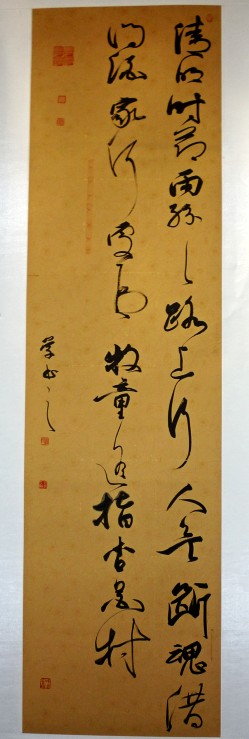 清明时節雨紛々路上行人欲斷魂借
問酒家何處有牧童遙指杏花村